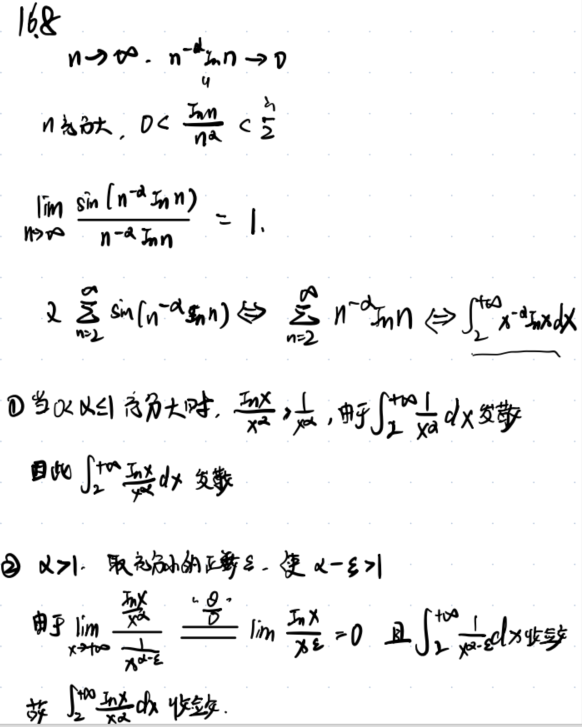 168
n→∞. n^{-α} ln n → 0
n充分大, 0 < \frac{ln n}{n^α} < \frac{π}{2}
lim_{n→∞} \frac{sin(n^{-α} ln n)}{n^{-α} ln n} = 1.
∑_{n=2}^{∞} sin(n^{-α} ln n) ⇔ ∑_{n=2}^{∞} n^{-α} ln n ⇔ ∫_2^{+∞} x^{-α} ln x dx
① 当0<α≤1 充分大时, \frac{ln x}{x^α} > \frac{1}{x^α}, 由于 ∫_2^{+∞} \frac{1}{x^α} dx 发散
因此 ∫_2^{+∞} \frac{ln x}{x^α} dx 发散
② α>1. 取充分小的正数ε. 使 α-ε>1
由于 lim_{x→+∞} \frac{\frac{ln x}{x^α}}{\frac{1}{x^{α-ε}}} = lim \frac{ln x}{x^ε} = 0 且 ∫_2^{+∞} \frac{1}{x^{α-ε}} dx 收敛
故 ∫_2^{+∞} \frac{ln x}{x^α} dx 收敛.